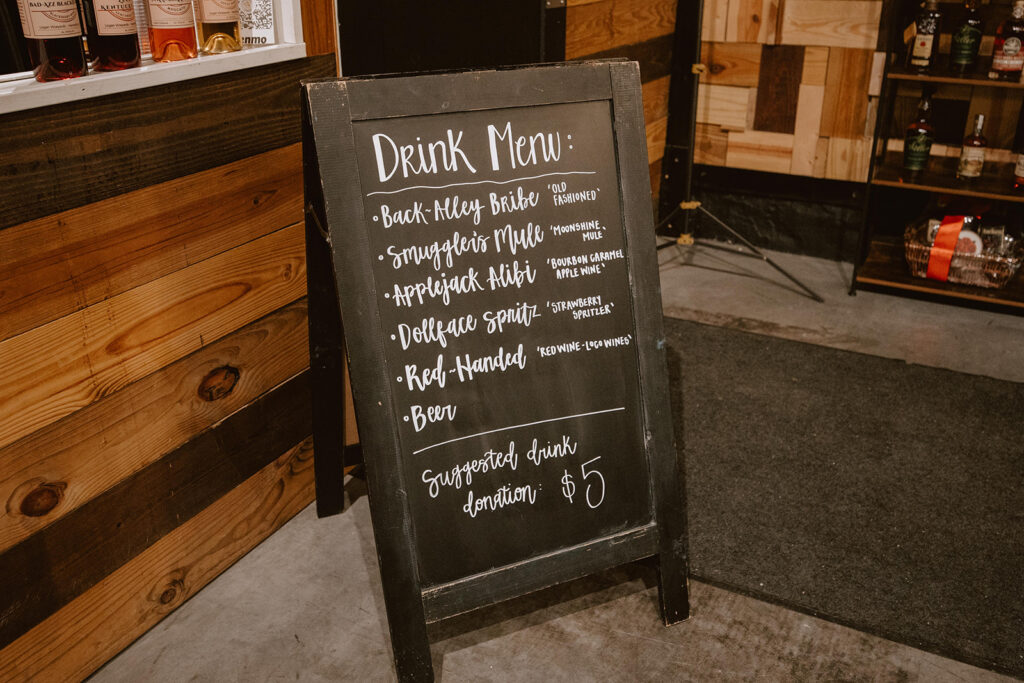 BAD-XZZ BLACK
KENTUCKY
enmo
Drink Menu:
• Back-Alley Bribe 'OLD
FASHIONED'
• Smuggler's Mule 'MOONSHINE
MULE'
• Applejack Alibi 'BOURBON CARAMEL
APPLE WINE'
• Dollface Spritz 'STRAWBERRY
SPRITZER'
• Red-Handed 'RED WINE-LOGO WINES'
• Beer
Suggested drink
donation: $5